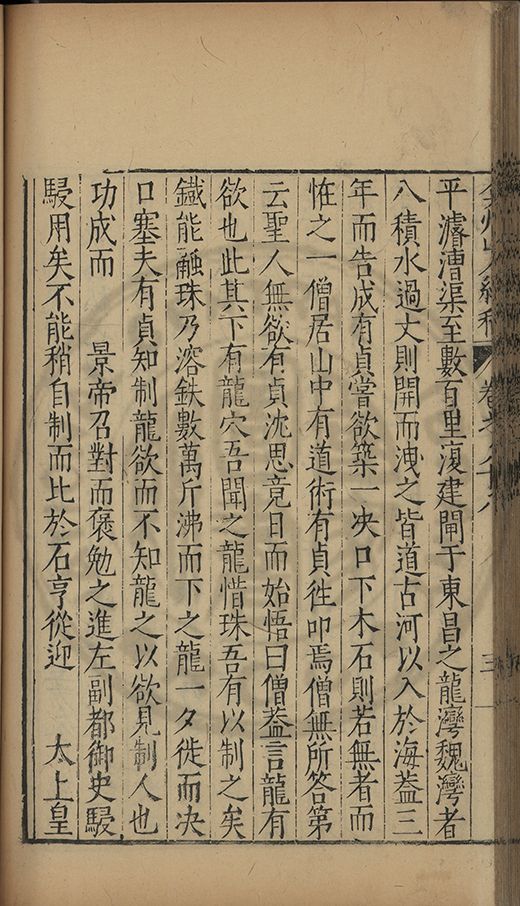 弇州山人續稿 卷之八十八 三
平濬漕渠至數百里復建閘于東昌之龍灣魏灣者
八積水過丈則開而洩之皆道古河以入於海葢三
年而告成有貞嘗欲築一决口下木石則若無者而
恠之一僧居山中有道術有貞徃叩焉僧無所答第
云聖人無欲有貞沈思竟日而始悟曰僧葢言龍有
欲也此其下有龍穴吾聞之龍惜珠吾有以制之矣
鐵能融珠乃溶鉄數萬斤沸而下之龍一夕徙而决
口塞夫有貞知制龍欲而不知龍之以欲見制人也
功成而 景帝召對而褒勉之進左副都御史駸
駸用矣不能稍自制而比於石亨從迎 太上皇